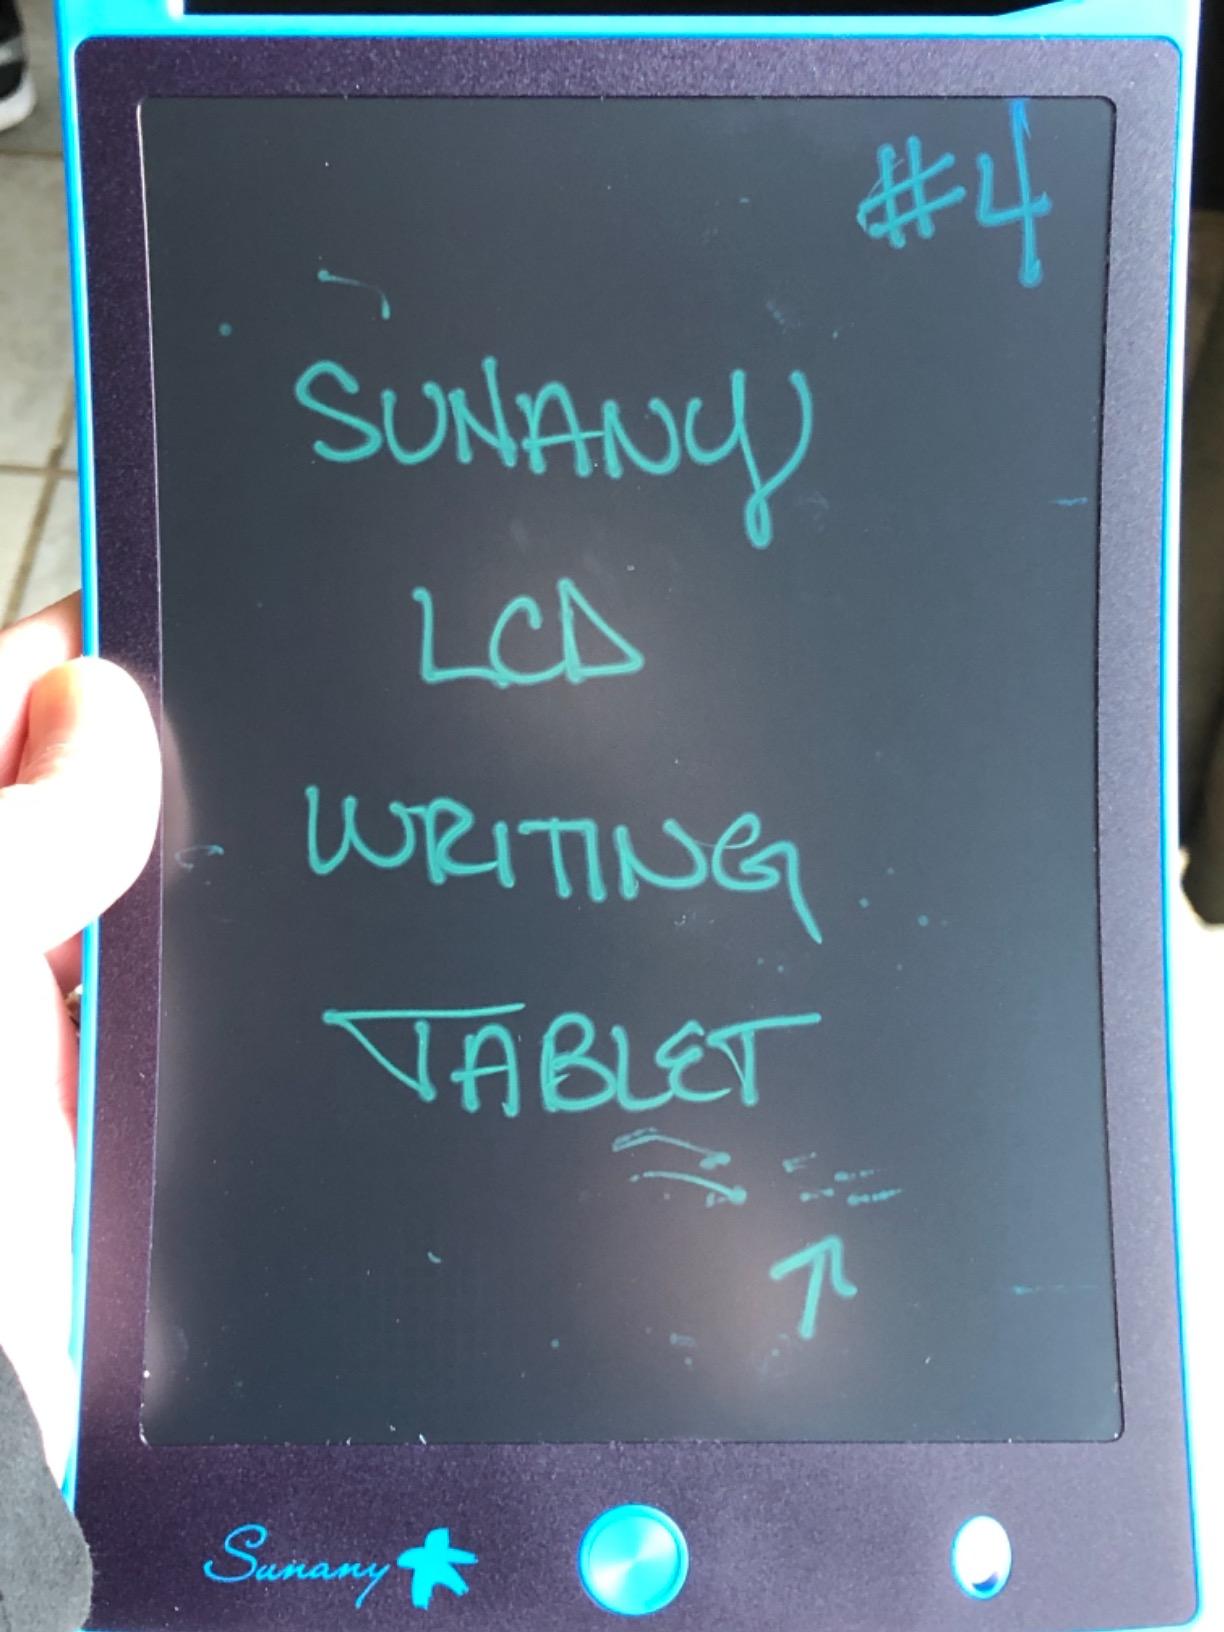 #4
SUNANY
LCD
WRITING
TABLET
Sunany